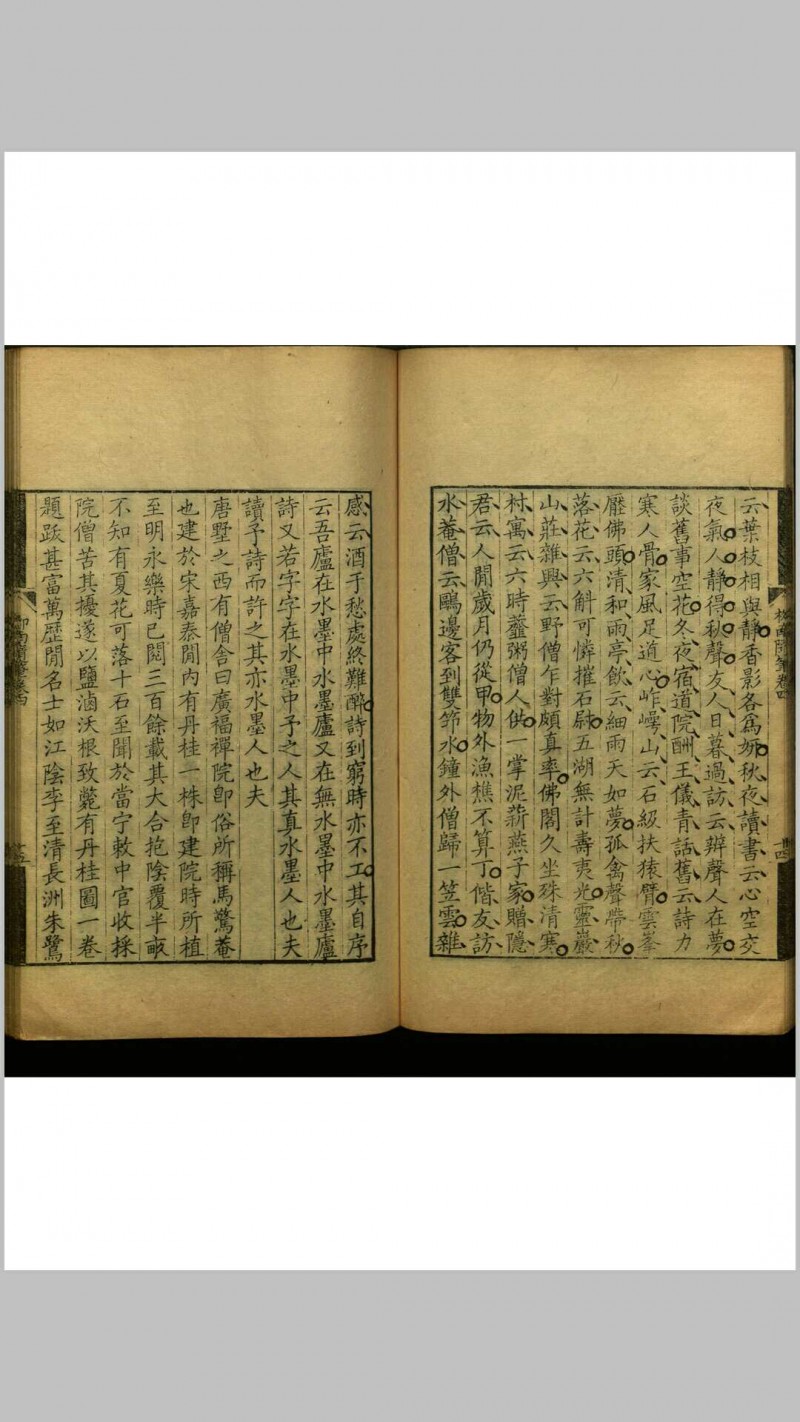 云葉枝相與靜香影各爲姸秋夜讀書云心空交
夜氣人靜得秋聲友人日暮過訪云辦聲人在夢
談舊事空花冬夜宿道院酬王儀青話舊云詩力
寒人骨家風足道心岞崿山云石級扶猿臂雲峯
壓佛頭清和雨亭飲云細雨天如夢孤禽聲帶秋
落花云六斛可憐摧石尉五湖無計壽夷光靈巖
山莊雜興云野僧乍對頗真率佛閣久坐殊清寒
村寓云六時虀粥僧人供一掌泥薪燕子家贈隱
君云人閒歲月仍從甲物外漁樵不算丁偕友訪
水菴僧云鷗邊客到雙笻水鐘外僧歸一笠雲雜
柳南隨筆卷四
感云酒于愁處終難醉詩到窮時亦不工其自序
云吾廬在水墨中水墨廬又在無水墨中水墨廬
詩又若字字在水墨中予之人其真水墨人也夫
讀予詩而許之其亦水墨人也夫
唐墅之西有僧舍曰廣福禪院卽俗所稱馬鶩菴
也建於宋嘉泰閒內有丹桂一株卽建院時所植
至明永樂時已閱三百餘載其大合抱陰覆半畝
不知有夏花可落十石至聞於當宁敕中官收採
院僧苦其擾遂以鹽滷沃根致斃有丹桂圖一卷
題跋甚富萬歷閒名士如江陰李至清長洲朱鷺
柳南隨筆卷四